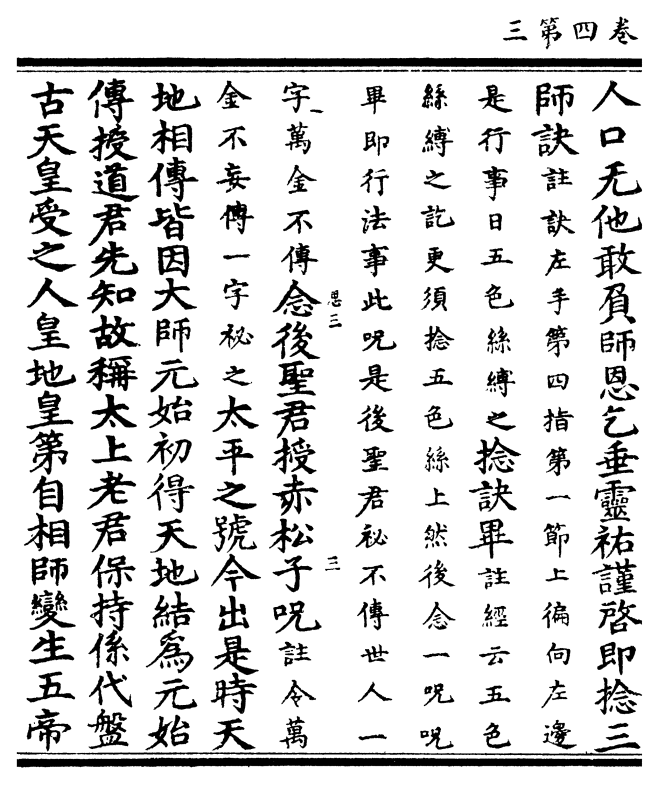 卷四第三
人口无他敢負師恩乞垂靈祐謹啓即捻三
師訣註訣左手第四指第一節上徧向左邊
是行事日五色絲縛之捻訣畢註經云五色
絲縛之訖更須捻五色絲上然後念一呪呪
畢即行法事此呪是後聖君祕不傳世人一
字萬金不傳念後聖君授赤松子呪註令萬
思三
三
金不妄傳一字祕之太平之號今出是時天
地相傳皆因大師元始初得天地結爲元始
傳授道君先知故稱太上老君保持係代盤
古天皇受之人皇地皇第自相師變生五帝